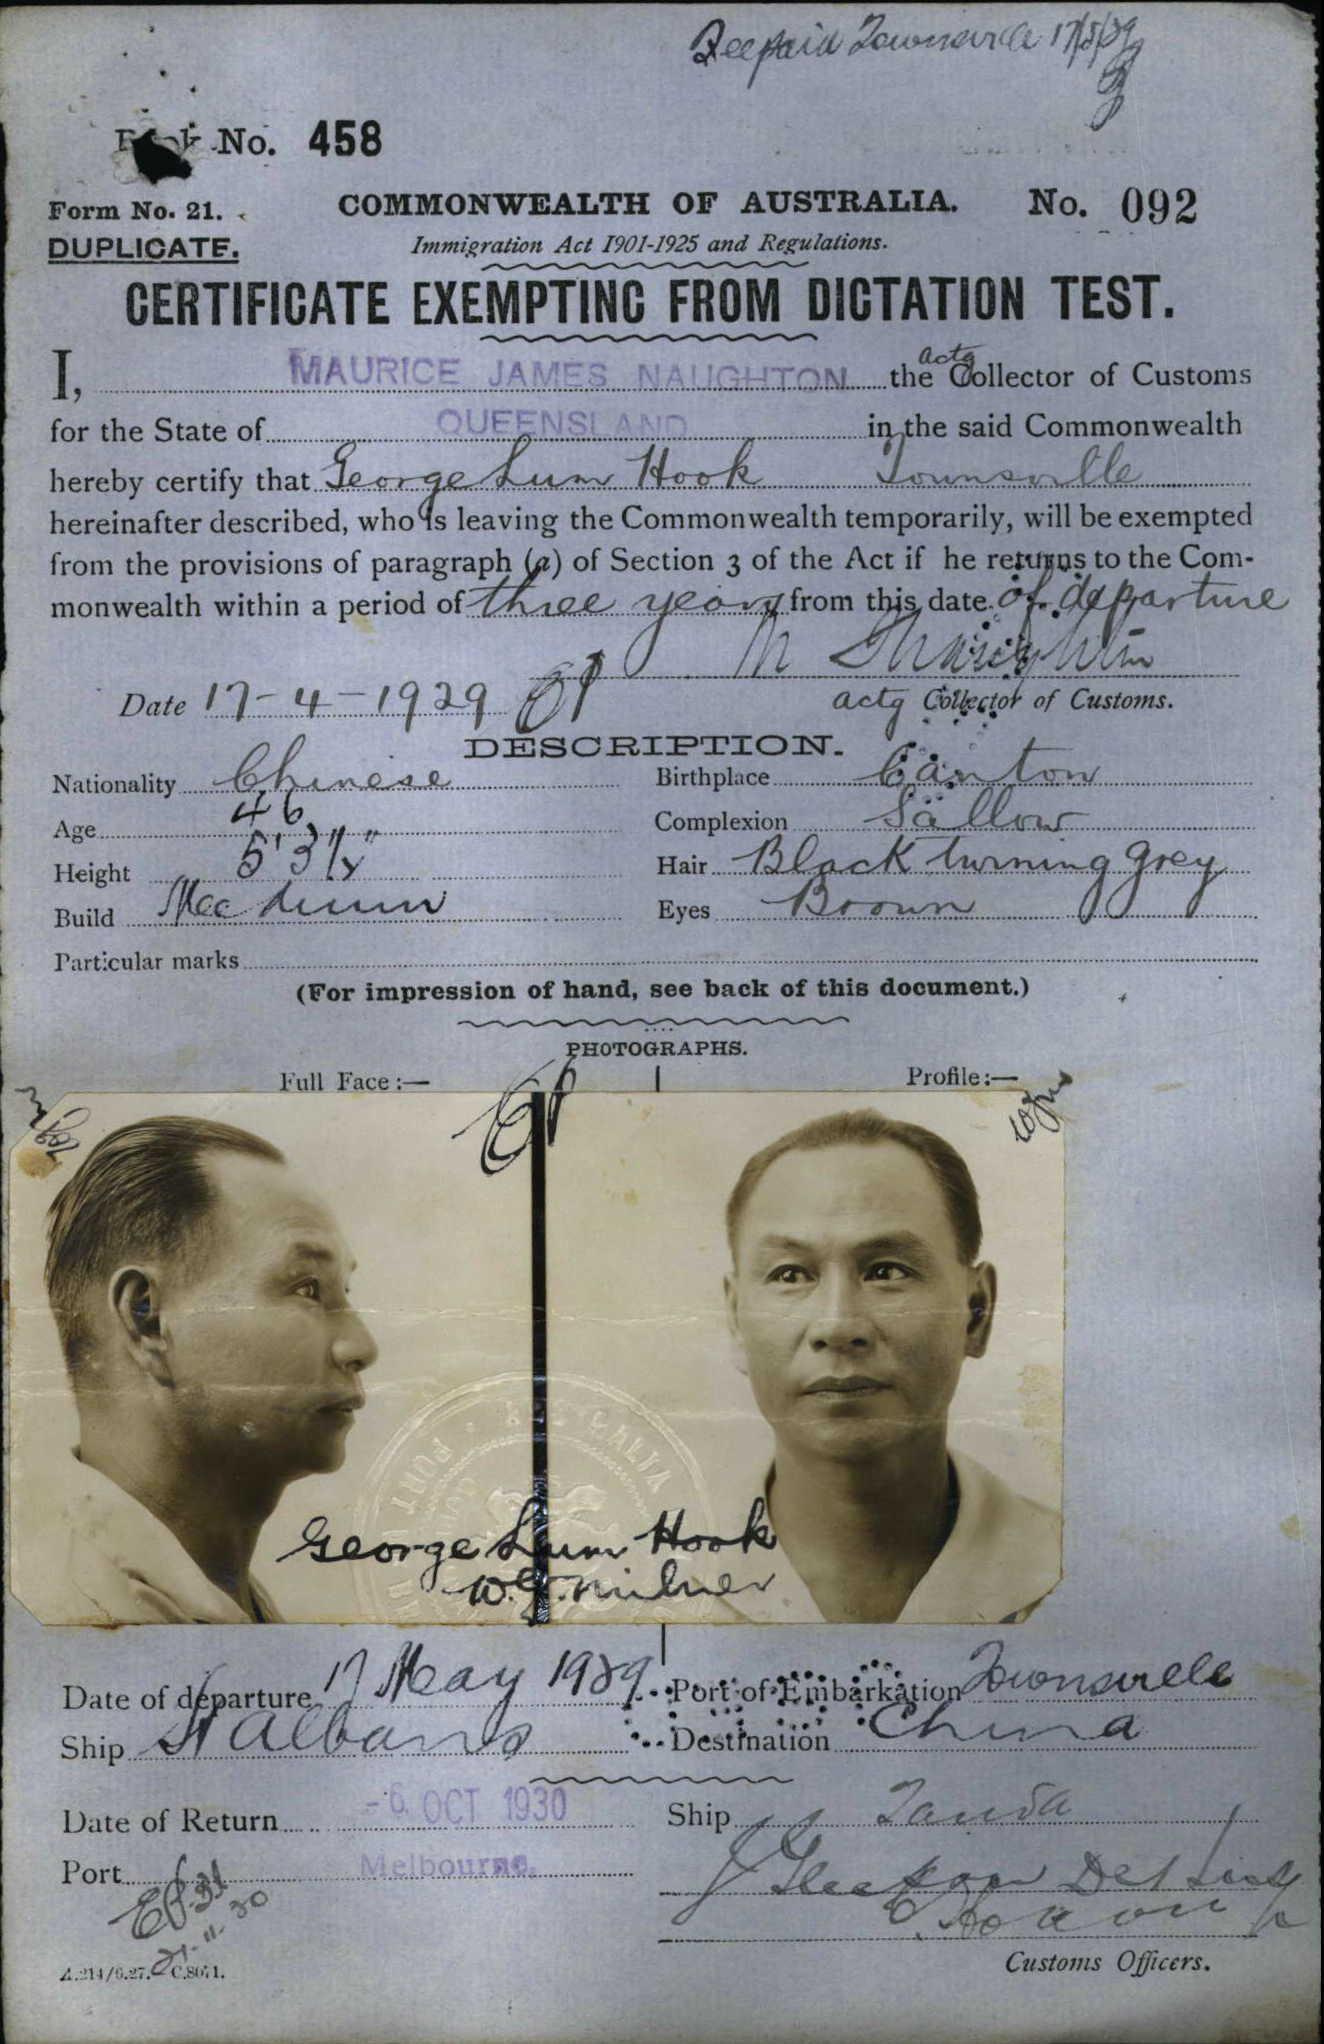 Feepaid Townsville 17/5/29
Book No. 458
Form No. 21. COMMONWEALTH OF AUSTRALIA. No. 092
DUPLICATE. Immigration Act 1901-1925 and Regulations.
CERTIFICATE EXEMPTING FROM DICTATION TEST.
I, MAURICE JAMES NAUGHTON the actg Collector of Customs
for the State of QUEENSLAND in the said Commonwealth
hereby certify that George Lum Hook Townsville
hereinafter described, who is leaving the Commonwealth temporarily, will be exempted
from the provisions of paragraph (a) of Section 3 of the Act if he returns to the Com-
monwealth within a period of three years from this date of departure
M J Naughton
Date 17-4-1929 actg Collector of Customs.
DESCRIPTION.
Nationality Chinese Birthplace Canton
Age 46 Complexion Sallow
Height 5' 3 1/4" Hair Black turning grey
Build Medium Eyes Brown
Particular marks
(For impression of hand, see back of this document.)
PHOTOGRAPHS.
Full Face:— Profile:—
George Lum Hook
W.J. Milner
Date of departure 17 May 1929 Port of Embarkation Townsville
Ship St Albans Destination China
Date of Return -6. OCT 1930 Ship Tanda
Port Melbourne.
21.11.30
Customs Officers.
A.214/6.27. C.8671.